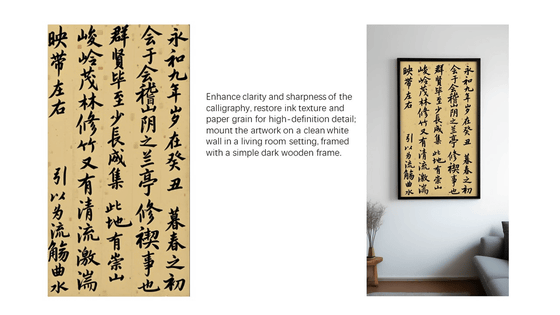 永和九年岁在癸丑 暮春之初
会于会稽山阴之兰亭 修禊事也
群贤毕至少长咸集 此地有崇山
峻岭茂林修竹又有清流激湍
映带左右 引以为流觞曲水
Enhance clarity and sharpness of the
calligraphy, restore ink texture and
paper grain for high-definition detail;
mount the artwork on a clean white
wall in a living room setting, framed
with a simple dark wooden frame.
永和九年岁在癸丑 暮春之初
会于会稽山阴之兰亭 修禊事也
群贤毕至少长咸集 此地有崇山
峻岭茂林修竹又有清流激湍
映带左右 引以为流觞曲水